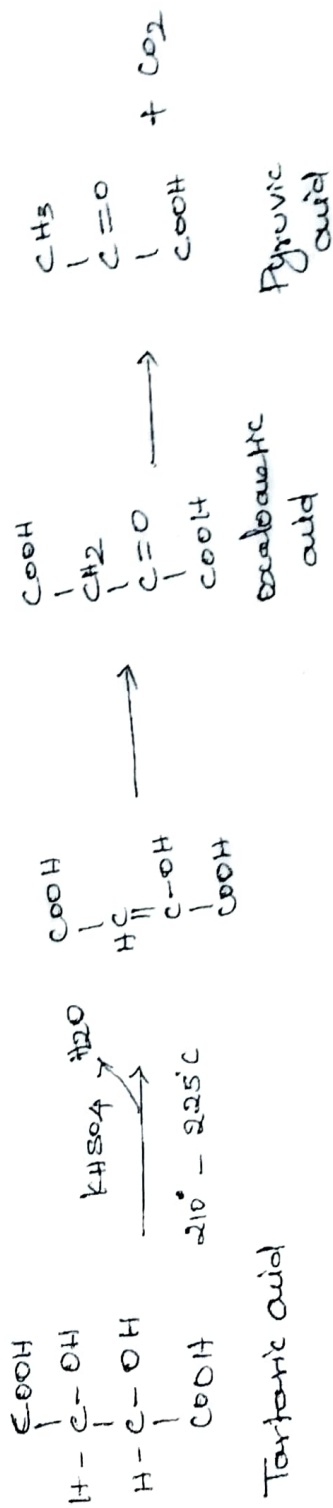 COOH
H - C - OH
H - C - OH
COOH
Tartaric acid
KHSO4
H2O
210° - 225°C
COOH
HC
||
C-OH
COOH
COOH
CH2
C=O
COOH
oxaloacetic
acid
CH3
C=O
COOH
+ CO2
Pyruvic
acid